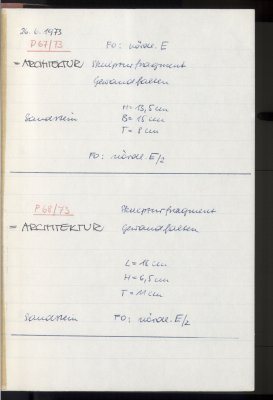 26.6.1973
P 67/73 FO: nördl. E
= ARCHITEKTUR Skulpturfragment
Gewandfalten
H = 13,5 cm
Sandstein B = 15 cm
T = 8 cm
FO: nördl. E/2
P 68/73 Skulpturfragment
= ARCHITEKTUR Gewandfalten
L = 18 cm
H = 6,5 cm
T = 11 cm
Sandstein FO: nördl. E/2